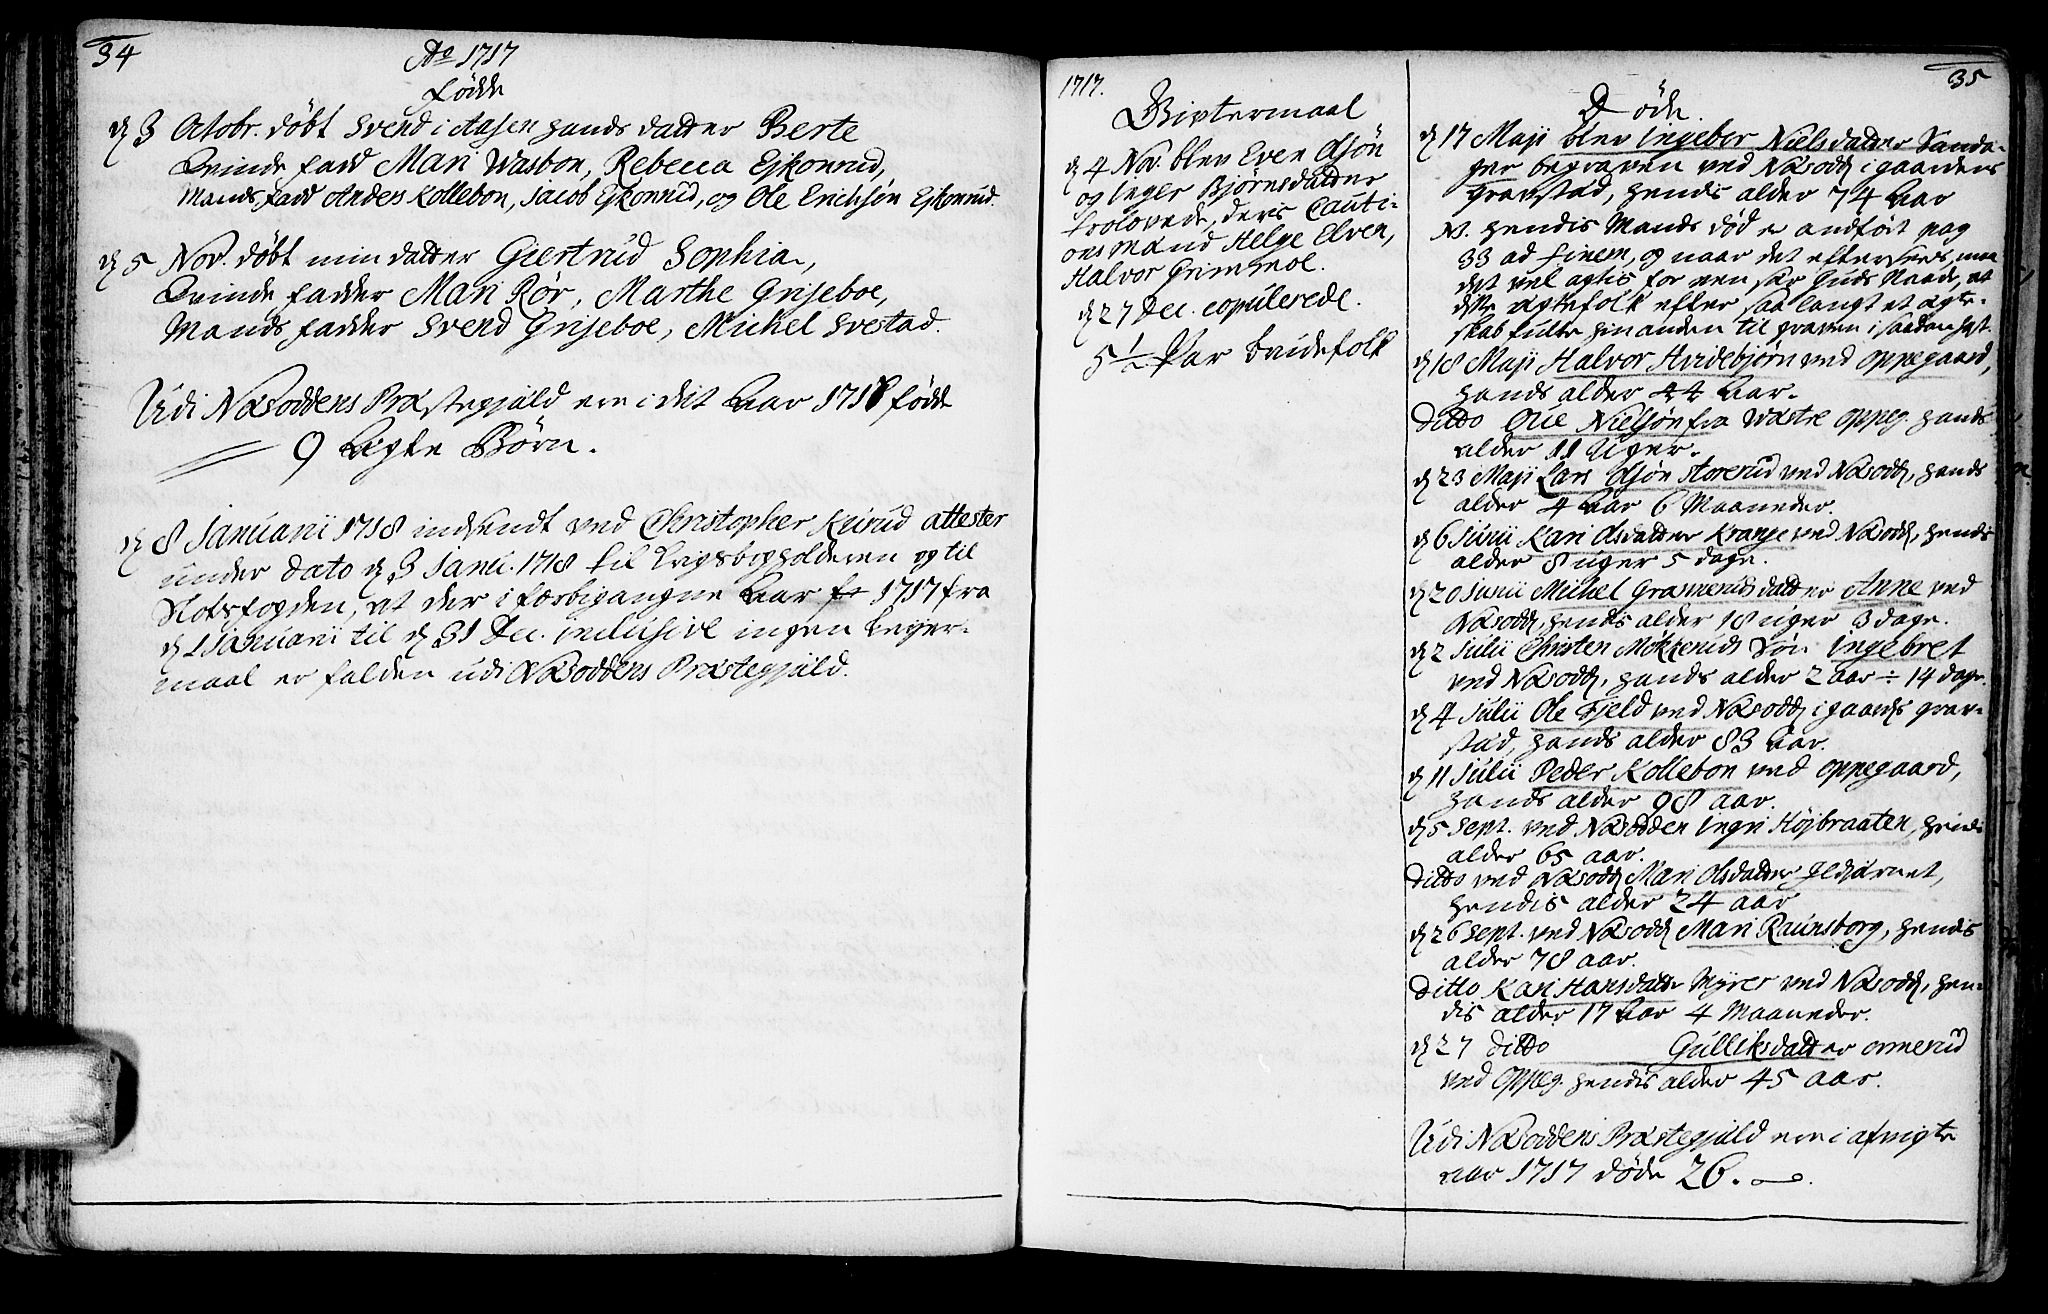 34
Ao 1717
Födde
d 3 Octobr. döbt Svend i Aasen hands datter Berte
Qvinde fadd Mari Wasbon, Rebecca Eskonrud,
Mands fadd Anders Kollebon, Jacob Eskonrud, og Ole Erichsön Eskonrud.
d 5 Nov. döbt min datter Giertrud Sophia,
Qvinde fadder Mari Rör, Marthe Grijseboe,
Mands fadder Svend Grijseboe, Michel Svestad.
Udi Næsoddens Præstegjæld ere i dit Aar 1718 födde
9 Ægte Börn.
d 8 Januarii 1718 indsendt ved Christopher Keirud attester
under dato d 3 Janu. 1718 til Krigsbogholderen og til
Slotsfogden, at der i forbigangne Aar 1717 fra
d 1 Januarii til d 31 Dec. inclusive ingen Leyer-
maal er falden udi Næsoddens Præstegjæld.
1717.
Givtermaal
d 4 Nov. blev Even Olsön
og Inger Björnsdatter
trolovede, deris Cauti-
ons mand Helge Elven,
Halvor Grimsroe.
d 27 Dec. copulerede.
5 1/2 Par brudefolk
35
Döde.
d 17 Maji blev Ingebor Nielsdatter Sanda-
ger begraven ved Næsodd i gaardens
gravstad, hendis alder 74 Aar
N. hendis Mands död er andfört pag
33 ad finem, og naar det eftersees, maa
det vel agtis for een stor Guds Naade, at
dette ægtefolk efter saa langt et ægte-
skab fulte hinanden til graven i saadan hast.
d 18 Maji Halvor Hvidebjörn ved Oppegaard,
hands alder 44 Aar.
Ditto Ole Nielsön fra Wæstre Oppeg. hands
alder 11 Uger.
d 23 Maji Lars Olsön Storerud ved Næsodd, hands
alder 4 Aar 6 Maaneder.
d 6 Junii Kari Olsdatter Krange ved Næsodd, hendis
alder 8 uger 5 dage.
d 20 Junii Michel Grasmeruds datter Anne ved
Næsodd, hendis alder 18 uger 3 dage.
d 2 Julii Christen Mökkeruds Sön Ingebret
ved Næsodd, hands alder 2 aar ÷ 14 dage.
d 4 Julii Ole Fjeld ved Næsodd i gaards grav-
stad, hands alder 83 Aar.
d 11 Julii Peder Kollebon ved Oppegaard,
hands alder 98 aar.
d 5 Sept. ved Næsodden Ingri Höjbraaten, hendis
alder 65 aar.
Ditto ved Næsodd Mari Olsdatter Ildjærnet,
hendis alder 24 aar
d 26 Sept. ved Næsodd Mari Raunsborg, hendis
alder 78 aar.
Ditto Kari Hansdatter Myrer ved Næsodd, hen-
dis alder 17 Aar 4 Maaneder.
d 27 ditto Gulliksdatter Ormerud
ved Oppeg. hendis alder 45 aar.
Udi Næsoddens Præstegjæld ere i afvigte
aar 1717 döde 26.